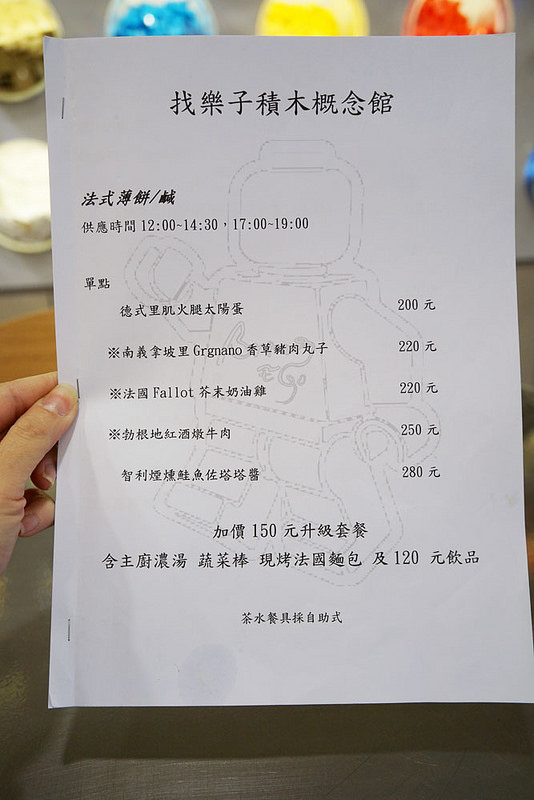 找樂子積木概念館
法式薄餅/鹹
供應時間 12:00~14:30，17:00~19:00
單點
德式里肌火腿太陽蛋 200 元
※南義拿坡里 Grgnano 香草豬肉丸子 220 元
※法國 Fallot 芥末奶油雞 220 元
※勃根地紅酒燉牛肉 250 元
智利煙燻鮭魚佐塔塔醬 280 元
加價 150 元升級套餐
含主廚濃湯 蔬菜棒 現烤法國麵包 及 120 元飲品
茶水餐具採自助式